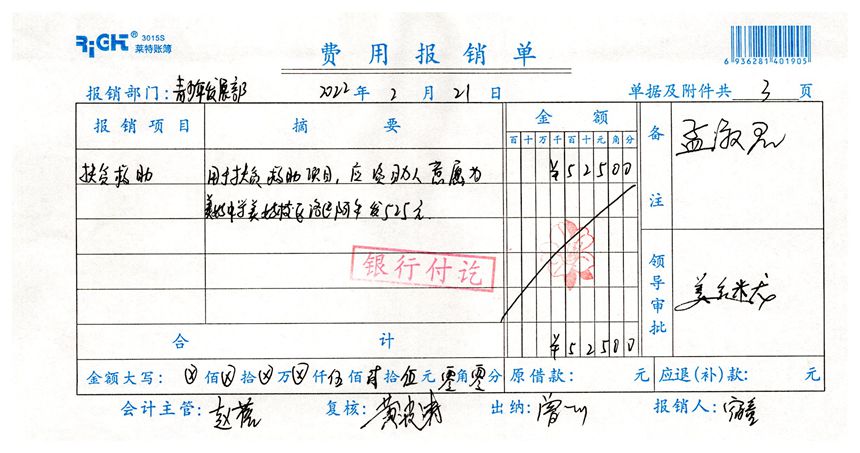 RiGHT® 3015S
莱特账簿
费用报销单
6 936281 401905
报销部门：青少年发展部 2022年2月21日 单据及附件共3页
报销项目 摘要 金额 备注
百十万千百十元角分
孟淑
扶贫救助 用于扶贫救助项目，应资助人意愿为 ¥52500
发525元
银行付讫
领导审批
合计 ¥52500
金额大写：ⓧ佰ⓧ拾ⓧ万ⓧ仟伍佰贰拾伍元零角零分 原借款： 元 应退(补)款： 元
会计主管：赵蕊 复核：黄波涛 出纳：曾 报销人：